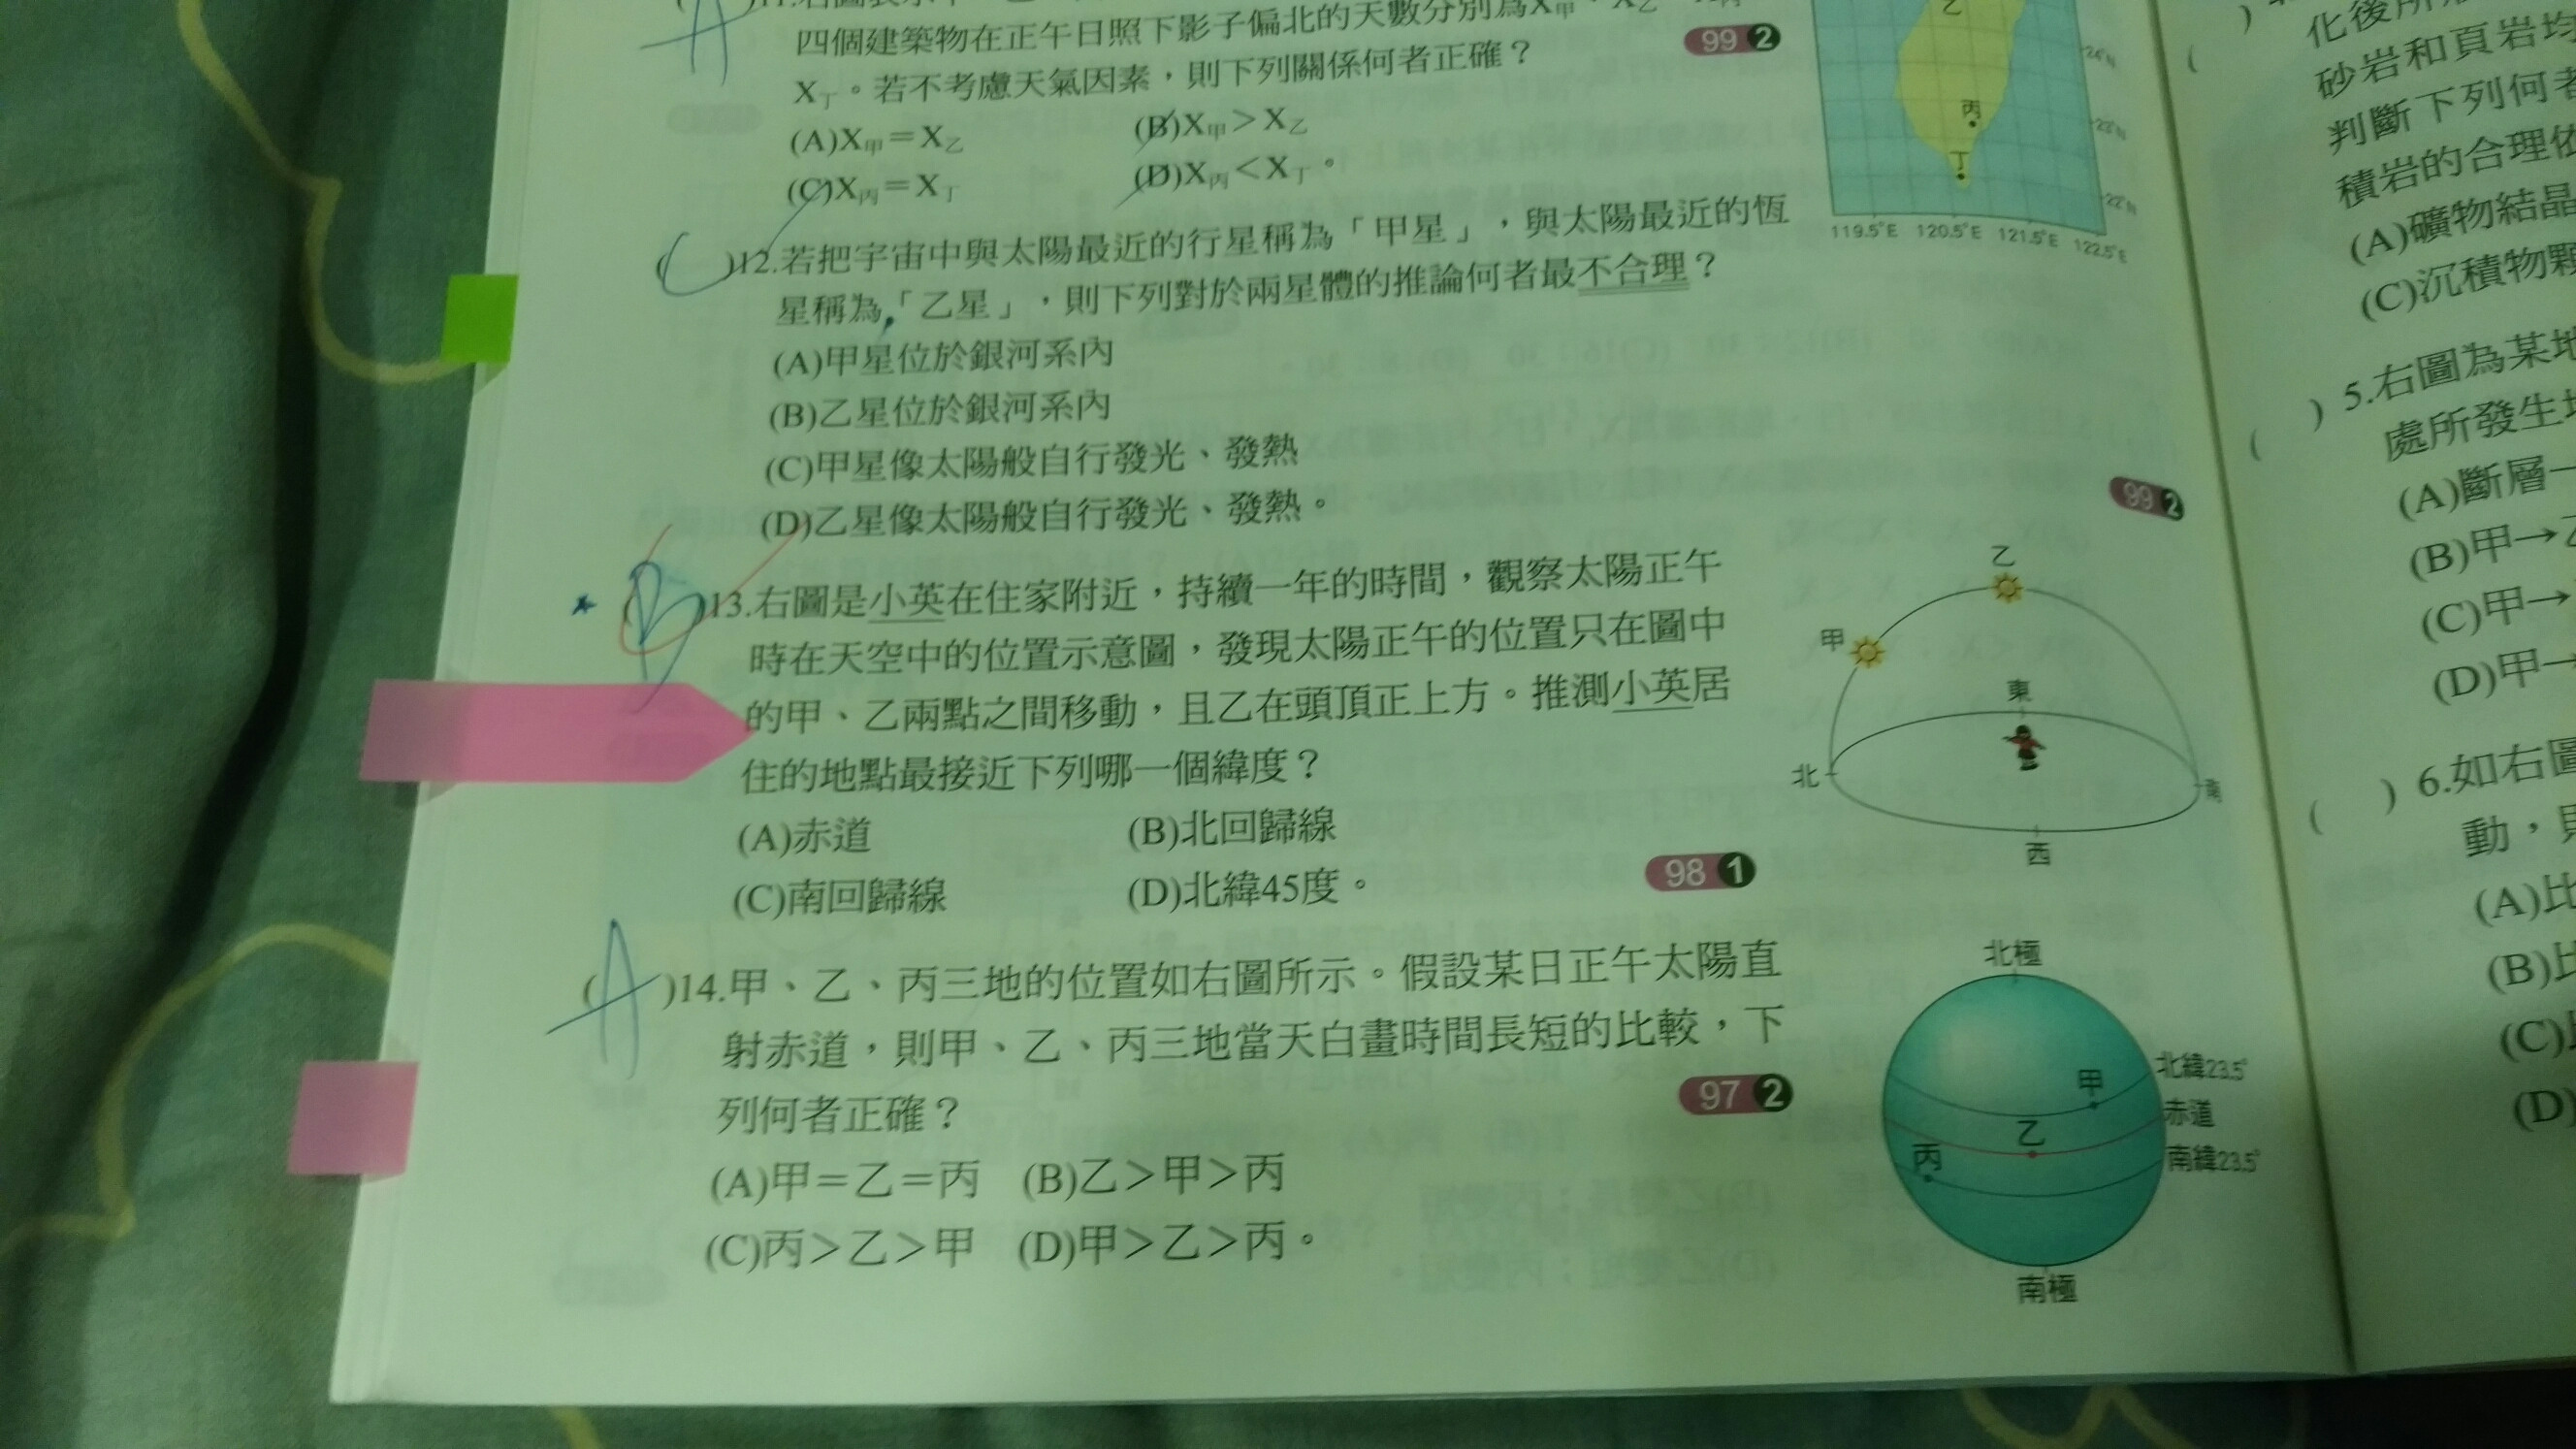 四個建築物在正午日照下影子偏北的天數分別為X甲、X乙
X丁。若不考慮天氣因素,則下列關係何者正確?
99 2
(A)X甲=X乙
(B)X甲>X乙
(C)X丙=X丁
(D)X丙<X丁。
A
乙
丙
丁
24°N
23°N
22°N
119.5°E 120.5°E 121.5°E 122.5°E
(C)12.若把宇宙中與太陽最近的行星稱為「甲星」,與太陽最近的恆
星稱為「乙星」,則下列對於兩星體的推論何者最不合理?
(A)甲星位於銀河系內
(B)乙星位於銀河系內
(C)甲星像太陽般自行發光、發熱
(D)乙星像太陽般自行發光、發熱。
99 2
(B)13.右圖是小英在住家附近,持續一年的時間,觀察太陽正午
時在天空中的位置示意圖,發現太陽正午的位置只在圖中
的甲、乙兩點之間移動,且乙在頭頂正上方。推測小英居
住的地點最接近下列哪一個緯度?
(A)赤道 (B)北回歸線
(C)南回歸線 (D)北緯45度。
98 1
乙
甲
東
北
南
西
(A)14.甲、乙、丙三地的位置如右圖所示。假設某日正午太陽直
射赤道,則甲、乙、丙三地當天白晝時間長短的比較,下
列何者正確?
97 2
(A)甲=乙=丙 (B)乙>甲>丙
(C)丙>乙>甲 (D)甲>乙>丙。
北極
甲
北緯23.5°
赤道
乙
丙
南緯23.5°
南極
砂岩和頁岩均
判斷下列何者
積岩的合理依
(A)礦物結晶
(C)沉積物顆
( ) 5.右圖為某地
處所發生地
(A)斷層
(B)甲→乙
(C)甲→
(D)甲→
( ) 6.如右圖
動,則
(A)比
(B)比
(C)比
(D)